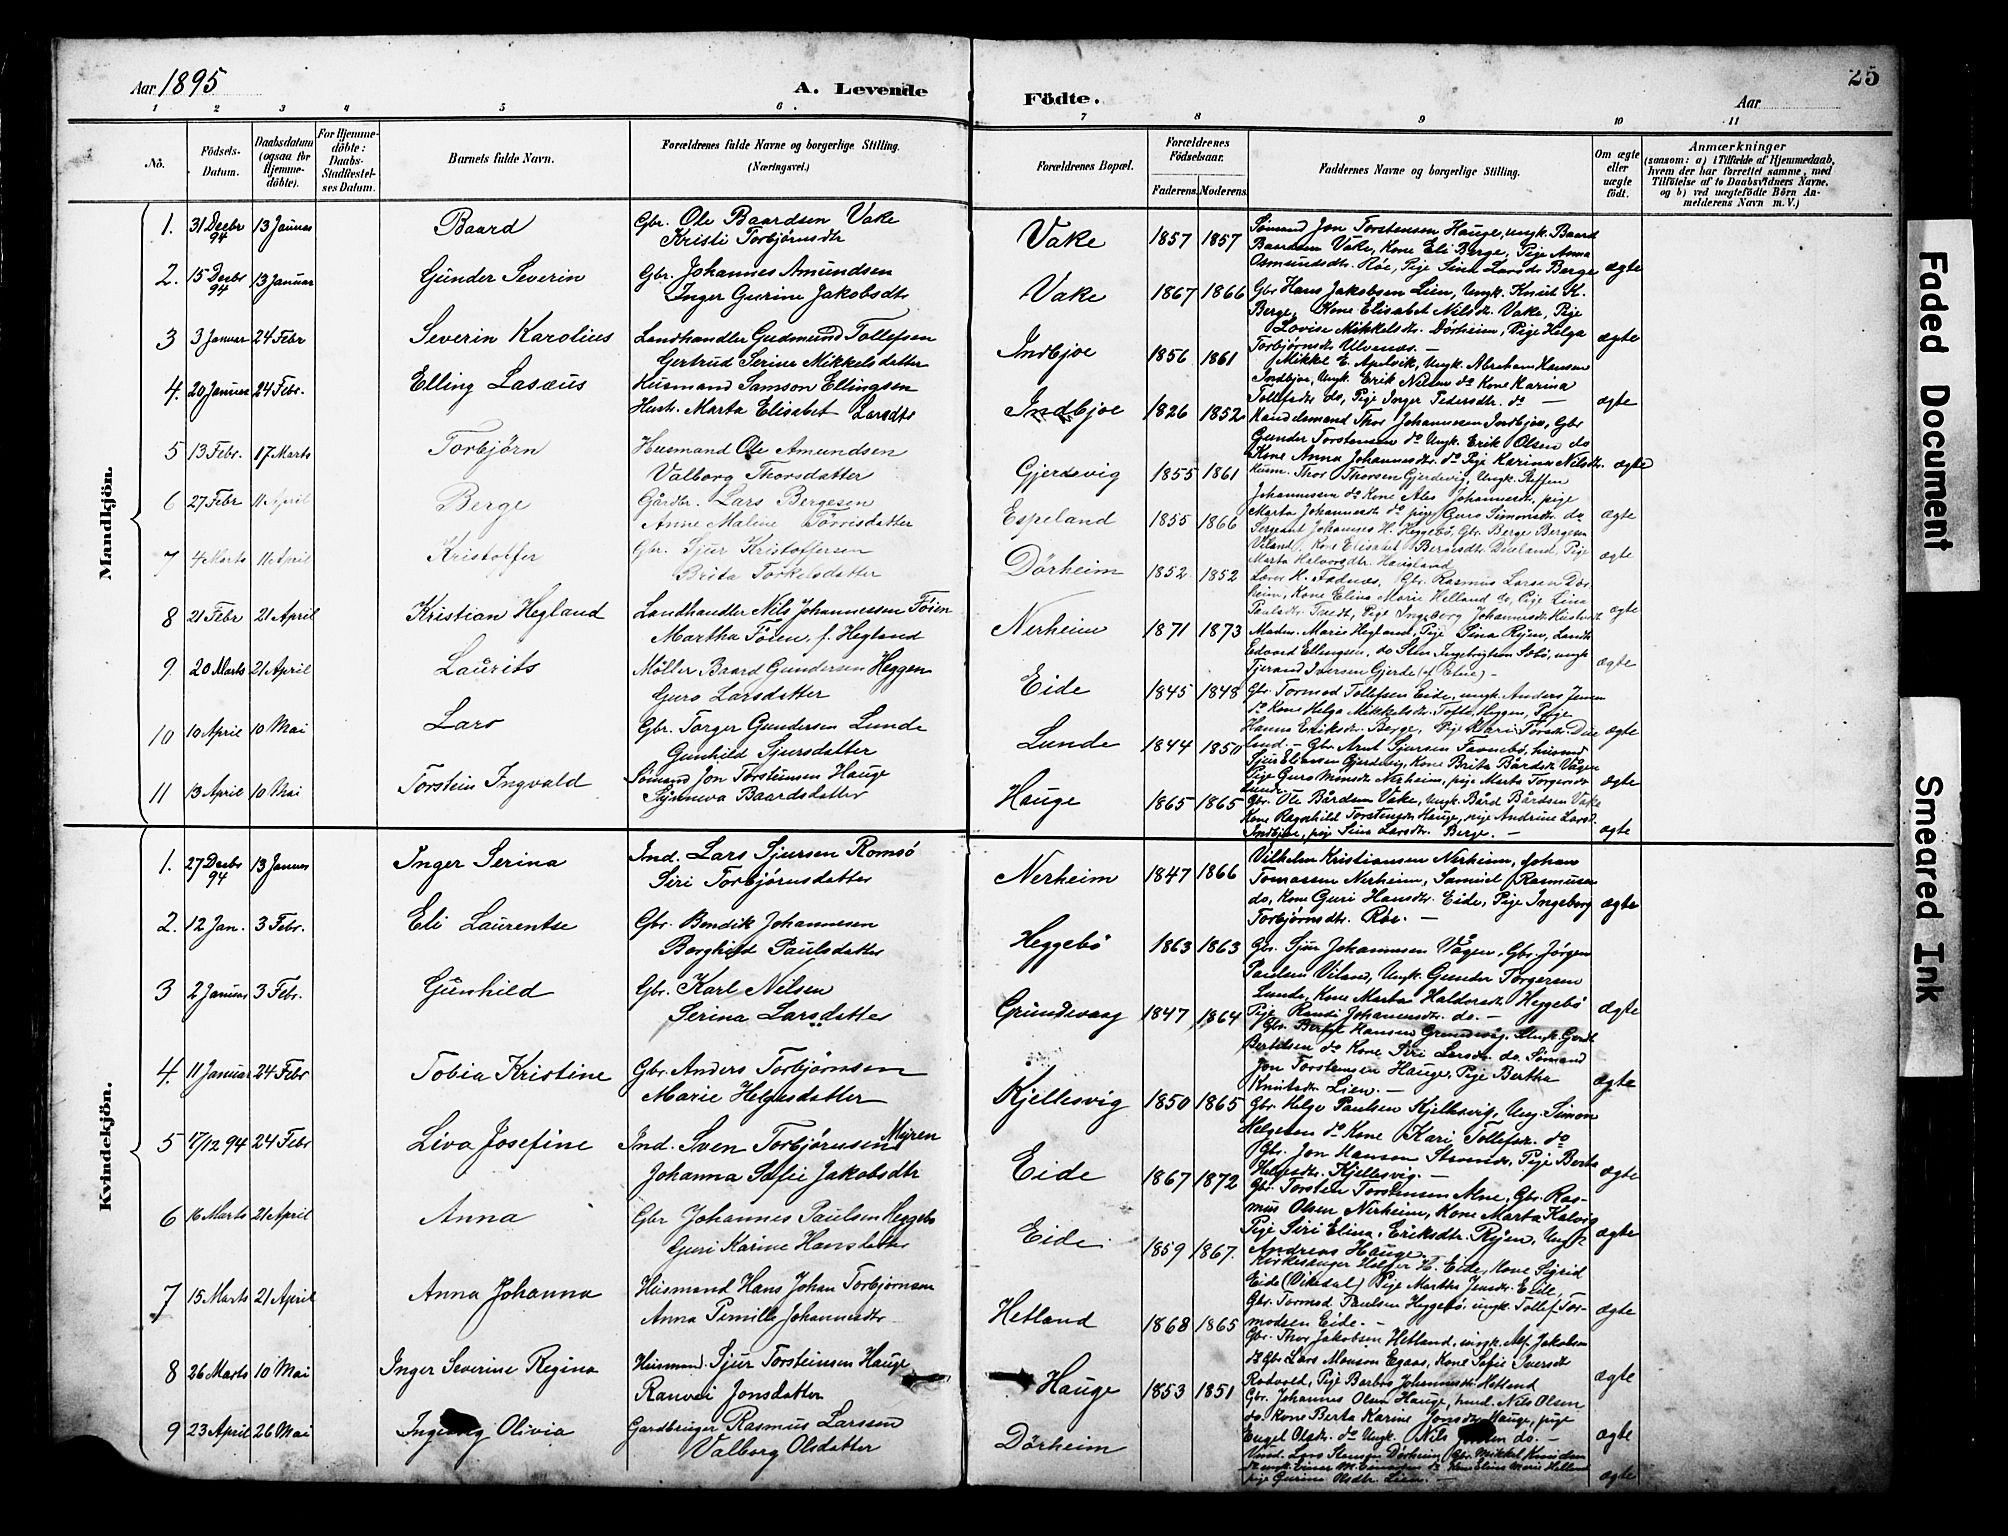 Aar 1895
A. Levende Födte.
Aar
25
1 2 3 4 5 6 7 8 9 10 11
No.
Födsels-Datum.
Daabsdatum (ogsaa for Hjemme-döbte).
For Hjemme-döbte: Daabs-Stadfestel-ses Datum.
Barnets fulde Navn.
Forældrenes fulde Navne og borgerlige Stilling. (Næringsvei.)
Forældrenes Bopæl.
Forældrenes Födselsaar.
Faderens. Moderens.
Faddernes Navne og borgerlige Stilling.
Om ægte eller uægte födt.
Anmærkninger
(saasom: a) i Tilfælde af Hjemmedaab, hvem der har forrettet samme, med Tilföielse af to Daabsvidners Navne, og b) ved uægtefödte Börn An-melderens Navn m. V.)
Mandkjön.
1. 31 Decbr 94 13 Januar Baard Gbr. Ole Baardsen Vake
Kristi Torbjörnsdtr Vake 1857 1857 Sömand Jon Torstensen Hauge, ungk. Baard
Baardsen Vake, Kone Eli Berge, Pige Anna
Osmundsdtr. Röe, Pige Sina Larsdtr Berge ægte
2. 15 Decbr 94 13 Januar Gunder Severin Gbr. Johannes Amundsen
Inger Gurine Jakobsdtr Vake 1867 1866 Gbr Hans Jakobsen Lien, Ungk. Knut K.
Berge, Kone Elisabet Nilsdtr. Vake, Pige
Lovise Mikkelsdtr. Dörheim, Pige Helga
Torbjörnsdtr Ulvenes. ægte
3 3 Januar 24 Febr Severin Karolius Landhandler Gudmund Tollefsen
Gertrud Serine Mikkelsdatter Indbjoe 1856 1861 Mikkel E. Apelvik, Ungk. Abraham Hansen
Indbjoe, Ungk. Erik Nilsen do Kone Karina
Tollefsdtr do, Pige Inger Pedersdtr. do ægte
4. 20 Januar 24 Febr. Elling Lasæus Husmand Samson Ellingsen
Hust. Marta Elisabet Larsdtr Indbjoe 1826 1852 Handelsmand Thor Johannesen Indbjoe, Gbr
Gunder Torstensen do Ungk. Erik Olsen do
Kone Anna Johannesdtr. do Pige Karina Nilsdtr. ægte
5 13 Febr. 17 Marts Torbjörn Husmand Ole Amundsen
Valborg Thorsdatter Gjerdevig 1855 1861 Husm. Thor Thorsen Gjerdevig, Ungk. Steffen
Johannesen do Kone Ales Johannesdtr, pige
Marta Johannesdtr do pige Guro Simonsdtr. do ægte
6 27 Febr 11 April Berge Gårdbr. Lars Bergesen
Anne Maline Torrisdatter Espeland 1855 1866 Sergeant Johannes H. Heggebö, Gbr. Berge Bergesen
Viland, Kone Elisabet Bergesdtr Dueland, Pige
Marta Halvorsdtr. Haugland ægte
7 4 Marts 11 April Kristoffer Gbr. Sjur Kristoffersen
Brita Torkelsdatter Dörheim 1852 1852 Lærer H. Fadnes, Gbr. Rasmus Larsen Dör-
heim, Kone Elina Marie Helland do, Pige Lina
Paulsdtr. Tvedt, Pige Ingeborg Johannesdtr ægte
8 21 Febr 21 April Kristian Hegland Landhandler Nils Johannessen Föien
Martha Föien, f. Hegland Nerheim 1871 1873 Madm. Marie Hegland, Pige Sina Ryen, Landh.
Edvard Ellingsen, do Sten Ingebrigtsen Sæbö, ungk
Tjerand Iversen Gjerde ægte
9. 20 Marts 21 April Laurits Möller Baard Gundersen Heggen
Guro Larsdatter Eide 1845 1848 Gbr. Tormod Tollefsen Eide, ungk. Anders Jensen
do Kone Helga Mikkelsdtr. Heggen, Pige
Hanna Eriksdtr. Berge, Pige Kari Torsdtr. Due
land. ægte
10 10 April 10 Mai Lars Gbr. Torger Gundersen Lunde
Gunhild Sjursdatter Lunde 1844 1850 Gbr Arnt Sjursen Favnebö, husmd
Sjur Elensen Gjerdevig, Kone Brita Bårdsdtr Vågen
Pige Guro Monsdtr Nerheim, pige Marta Torgersdtr
Lunde ægte
11 13 April 10 Mai Torstein Ingvald Sömand Jon Torsteinsen Hauge
Synneva Baardsdatter Hauge 1865 1865 Gbr. Ole Bårdsen Vake, Ungk. Bård Bårdsen Vake
Kone Ragnhild Torstensdtr Hauge, pige Andrine Larsd.
Indbjoe, pige Sina Larsdtr. Berge. ægte
Kvindekjön.
1. 27 Decbr 94 13 Januar Inger Serina Ind. Lars Sjursen Romsö
Siri Torbjörnsdatter Nerheim 1847 1866 Vilhelm Kristiansen Nerheim, Johan
Tomassen Nerheim, Samuel Rasmussen
do, Kone Guri Hansdtr. Eide, Pige Ingeborg
Torbjörnsdtr. Röe. ægte
2. 12 Jan. 3 Febr. Eli Laurentse Gbr. Bendik Johannesen
Borghild Paulsdatter Heggebö 1863 1863 Gbr. Sjur Johannesen Vågen, Gbr. Jörgen
Paulsen Viland, Ungk. Gunder Torgersen
Lunde, Kone Marta Haldorsdtr Heggebö
Pige Randi Johannesdtr. do. ægte
3 2 Januar 3 Febr. Gunhild Gbr. Karl Nilsen
Serina Larsdatter Grundevaag 1847 1864 Gbr. Berge Hansen Grundevåg, Ungk. Gjert
Bertelsen do Kone Siri Larsdtr. do. Sömand
Jon Torstensen Hauge, Pige Bertha
Knutsdtr Lien. ægte
4. 11 Januar 24 Febr Tobia Kristine Gbr. Anders Torbjörnsen
Marie Helgesdatter Kjellesvig 1850 1865 Gbr. Helge Paulsen Kjellesvig, Ung. Simon
Helgesen do Kone Kari Tollefsdr. do
Gbr. Jon Hansen, Pige Berta
Helgesdtr. Kjellesvig. ægte
5 7/12 94 24 Febr Liva Josefine Ind. Sven Torbjörnsen Myren
Johanna Sofie Jakobsdtr Eide 1867 1872 Gbr. Torsten Torstensen Alne, Gbr. Ras-
mus Olsen Nerheim, Kone Marta Kalvig
Pige Siri Elina Eriksdtr. Ryen, Ungk
Andreas Hauge. ægte
6 16 Marts 21 April Anna Gbr Johannes Paulsen Heggebö
Guri Karine Hansdatter Eide 1859 1867. Kirkesanger H. Eide, Kone Sigrid
Eide (Vikedal) Pige Martha Jensdtr. Eide,
Gbr. Tormod Paulsen Heggebö, ungk. Tollef Tor-
modsen Eide. ægte
7 15 Marts 21 April Anna Johanna Husmand Hans Johan Torbjörnsen
Anna Pernille Johannesdtr. Hetland 1868 1865 Gbr. Thor Jakobsen Hetland, ungk. Alf Jakobsen
do Gbr Lars Monsen Egaas, Kone Sofie Iversdtr
Rodvold, Pige Barbro Johannesdtr Hetland ægte
8 26 Marts 10 Mai Inger Severine Regina Husmand Sjur Torsteinsen Hauge
Ranvei Jonsdatter Hauge 1853 1851 Gbr. Johannes Olsen Hauge, husmd. Nils Olsen
do. Kone Berta Karine Jonsdtr Hauge, pige
Engel Olsdtr. do Ungk. Nils do. ægte
9 23 April 26 Mai Olivia Gardbruger Rasmus Larssen
Valborg Olsdatter Dörheim Lars Hansen Dörheim, Gbr. Mikkel Knudsen
do ungk. Einar M. do Kone Elina Marie Helland
pige Gurine Olsdtr. Lien. ægte
Faded Document
Smeared Ink